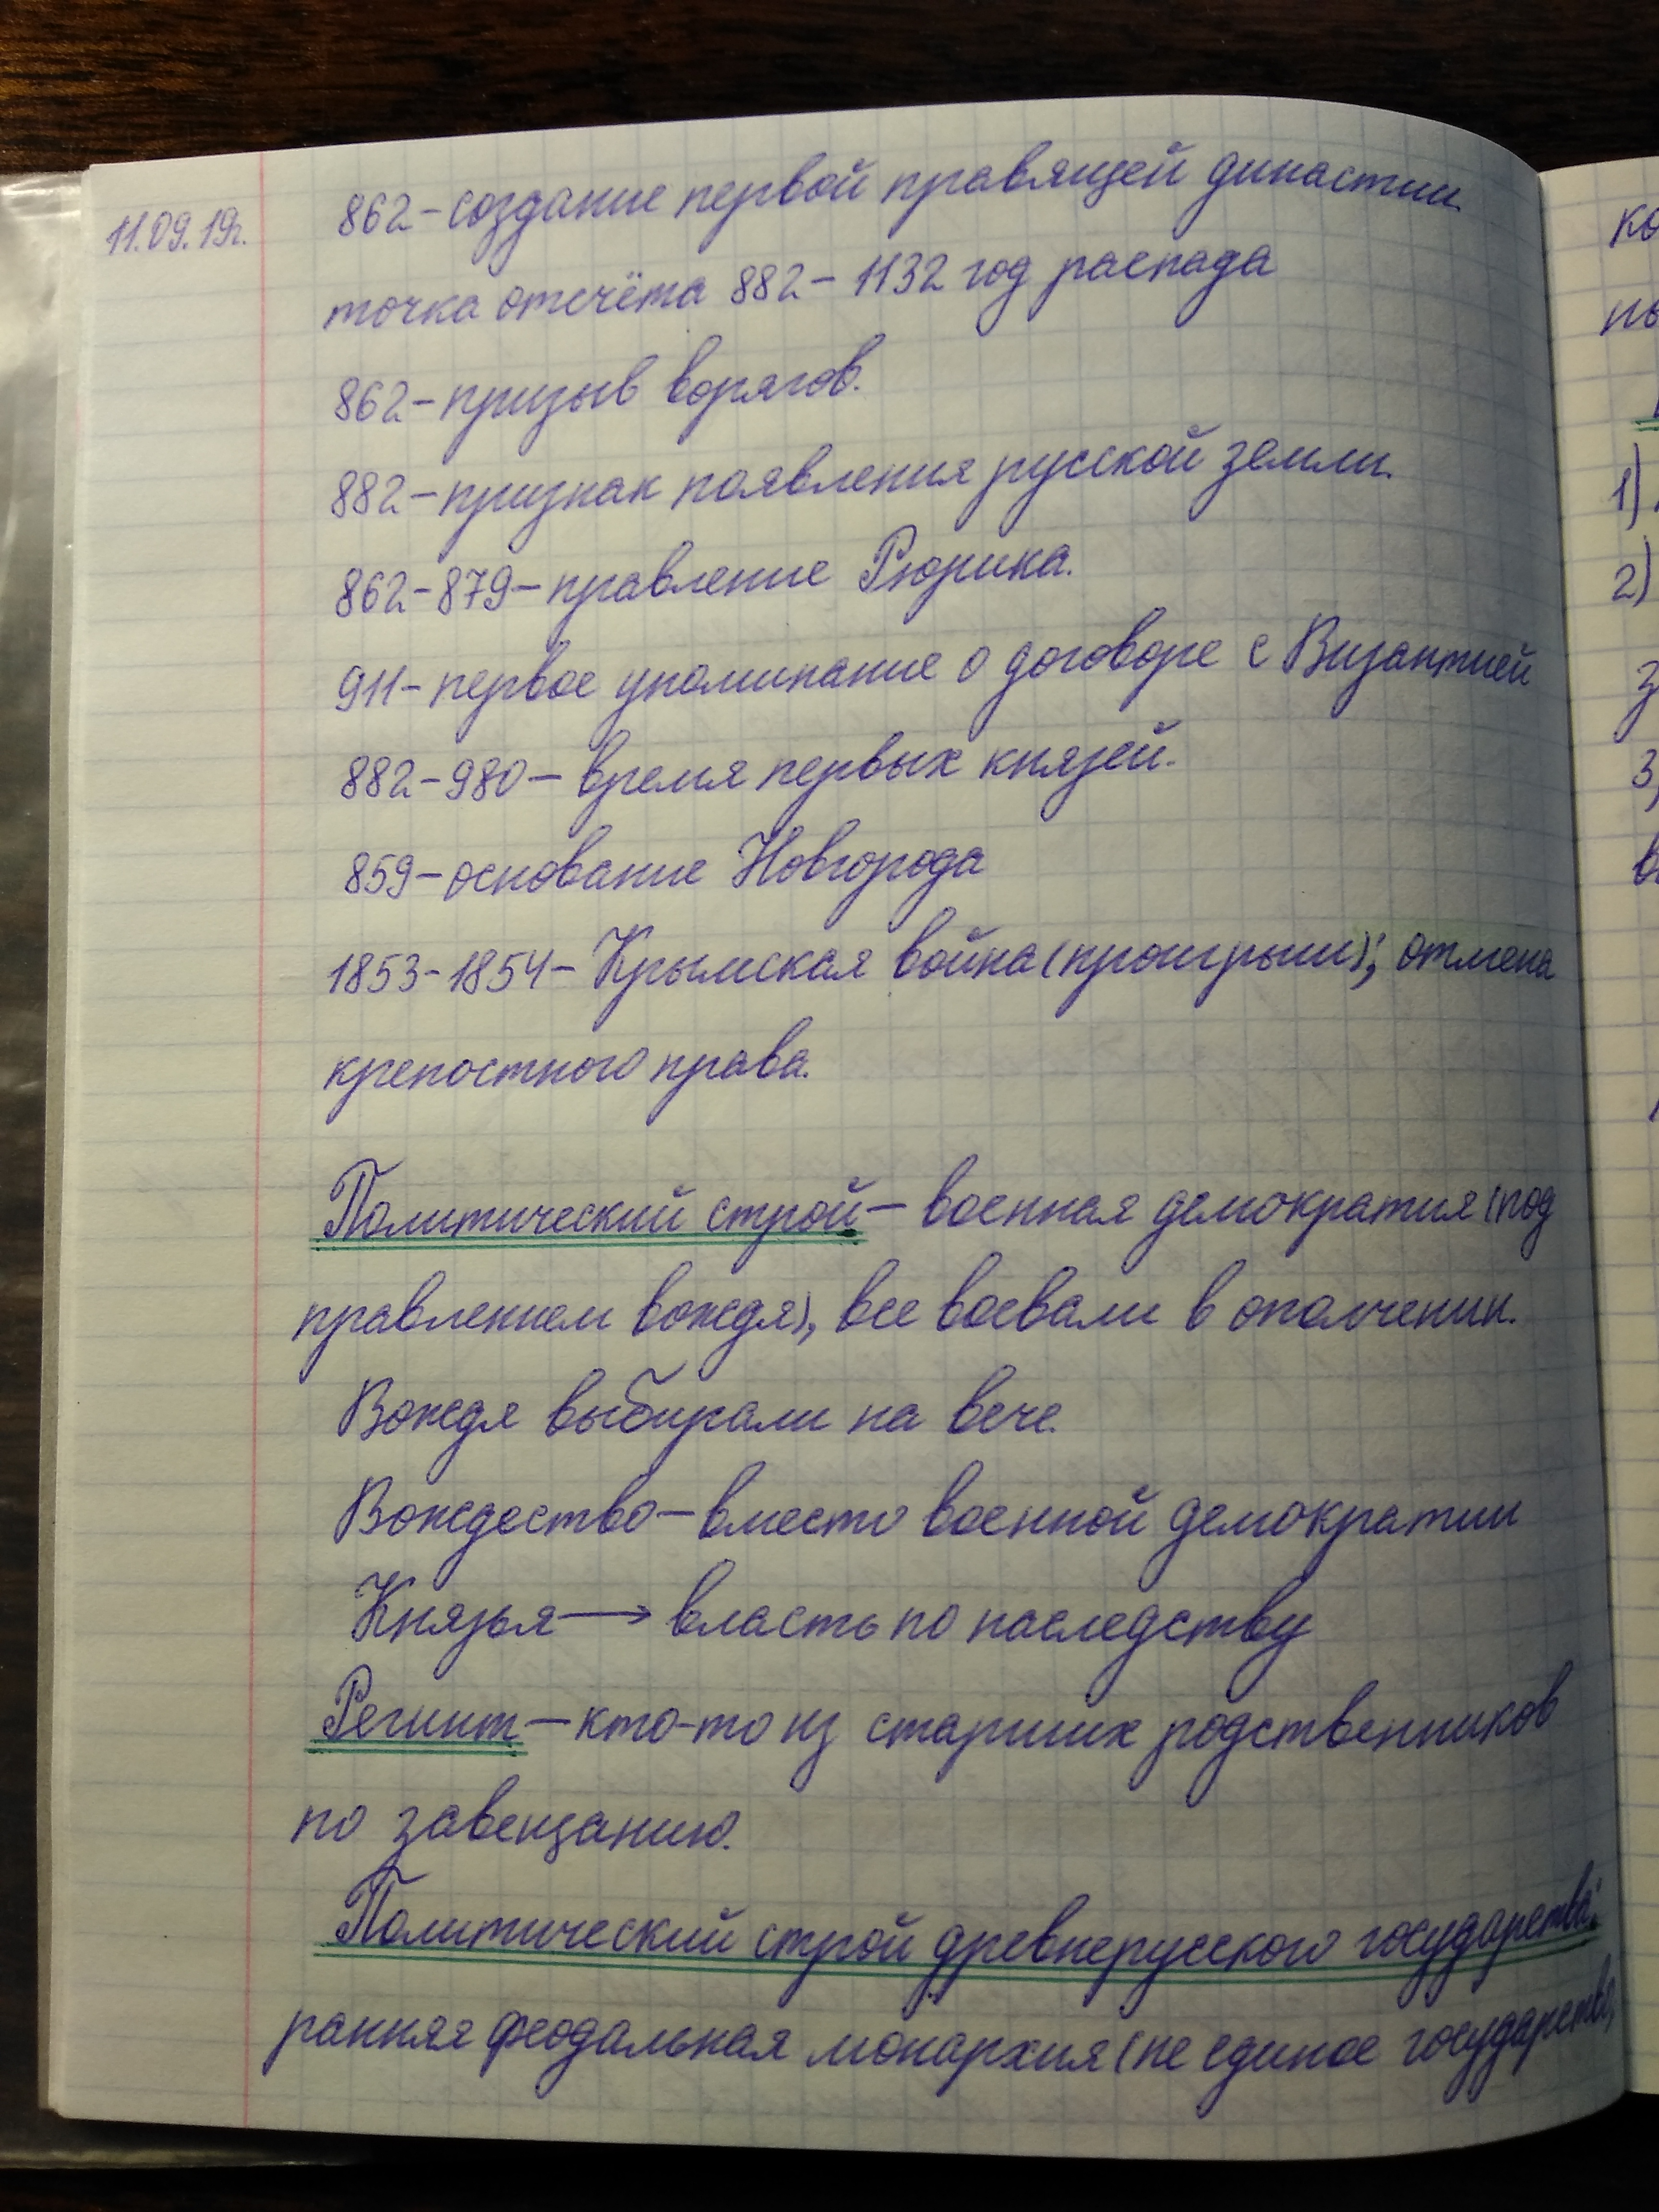 11.09.19г.
862-создание первой правящей династии
точка отсчёта 882-1132 год распада
862-призыв ворягов.
882-признак появления русской земли.
862-879-правление Рюрика.
911-первое упоминание о договоре с Византией
882-980-время первых князей.
859-основание Новгорода
1853-1854-Крымская война(проигрыш); отмена
крепостного права.
Политический строй-военная демократия(под
правлением вождя), все воевали в ополчении.
Вождя выбирали на вече.
Вождество-вместо военной демократии
Князья→власть по наследству
Регинт-кто-то из старших родственников
по завещанию.
Политический строй древнерусского государства:
ранняя феодальная монархия(не единое государство,
1)
2)